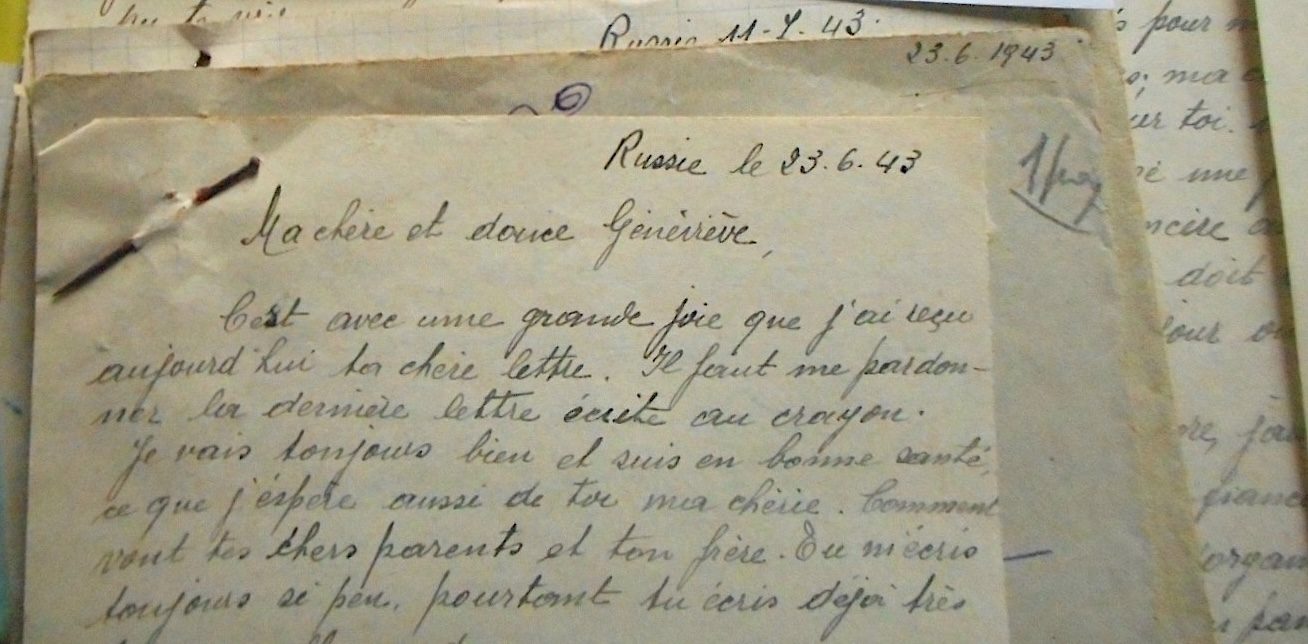 Russie 11-7-43.
23.6.1943
Russie le 23.6.43
Ma chère et douce Généviève,
C'est avec une grande joie que j'ai reçu
aujourd'hui ta chère lettre. Il faut me pardon-
ner la dernière lettre écrite au crayon.
Je vais toujours bien et suis en bonne santé,
ce que j'éspère aussi de toi ma chérie. Comment
vont tes chers parents et ton frère. Tu m'écris
toujours si peu, pourtant tu écris déjà très
pour
ma
toi.
une
doit